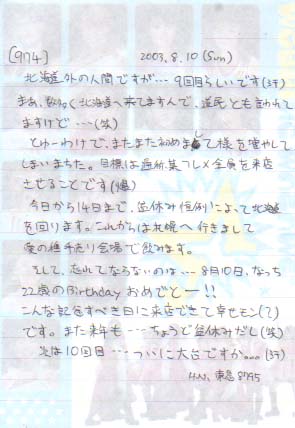 [974] 2003.8.10(Sun)
北海道外の人間ですが… 9回目らしいです(汗)
まぁ、数多く北海道へ来てますんで、道民とも言われて
ますけど…(笑)
とゆーわけで、またまた初めまして様を増やして
しまいました。目標は某フレメ全員を来店
させることです(爆)
今日から14日まで、盆休み恒例によって北海道
を回ります。これからは札幌へ行きまして
夜の会場で飲みます。
そして、忘れてならないのは…8月10日、なっち
22歳のBirthdayおめでとー!!
こんな記念すべき日に来店できて幸せモン(て)
です。また来年も…ちょうど盆休みだし(笑)
次は10回目…ついに大台ですか。。。(汗)
H.N. 東急8795